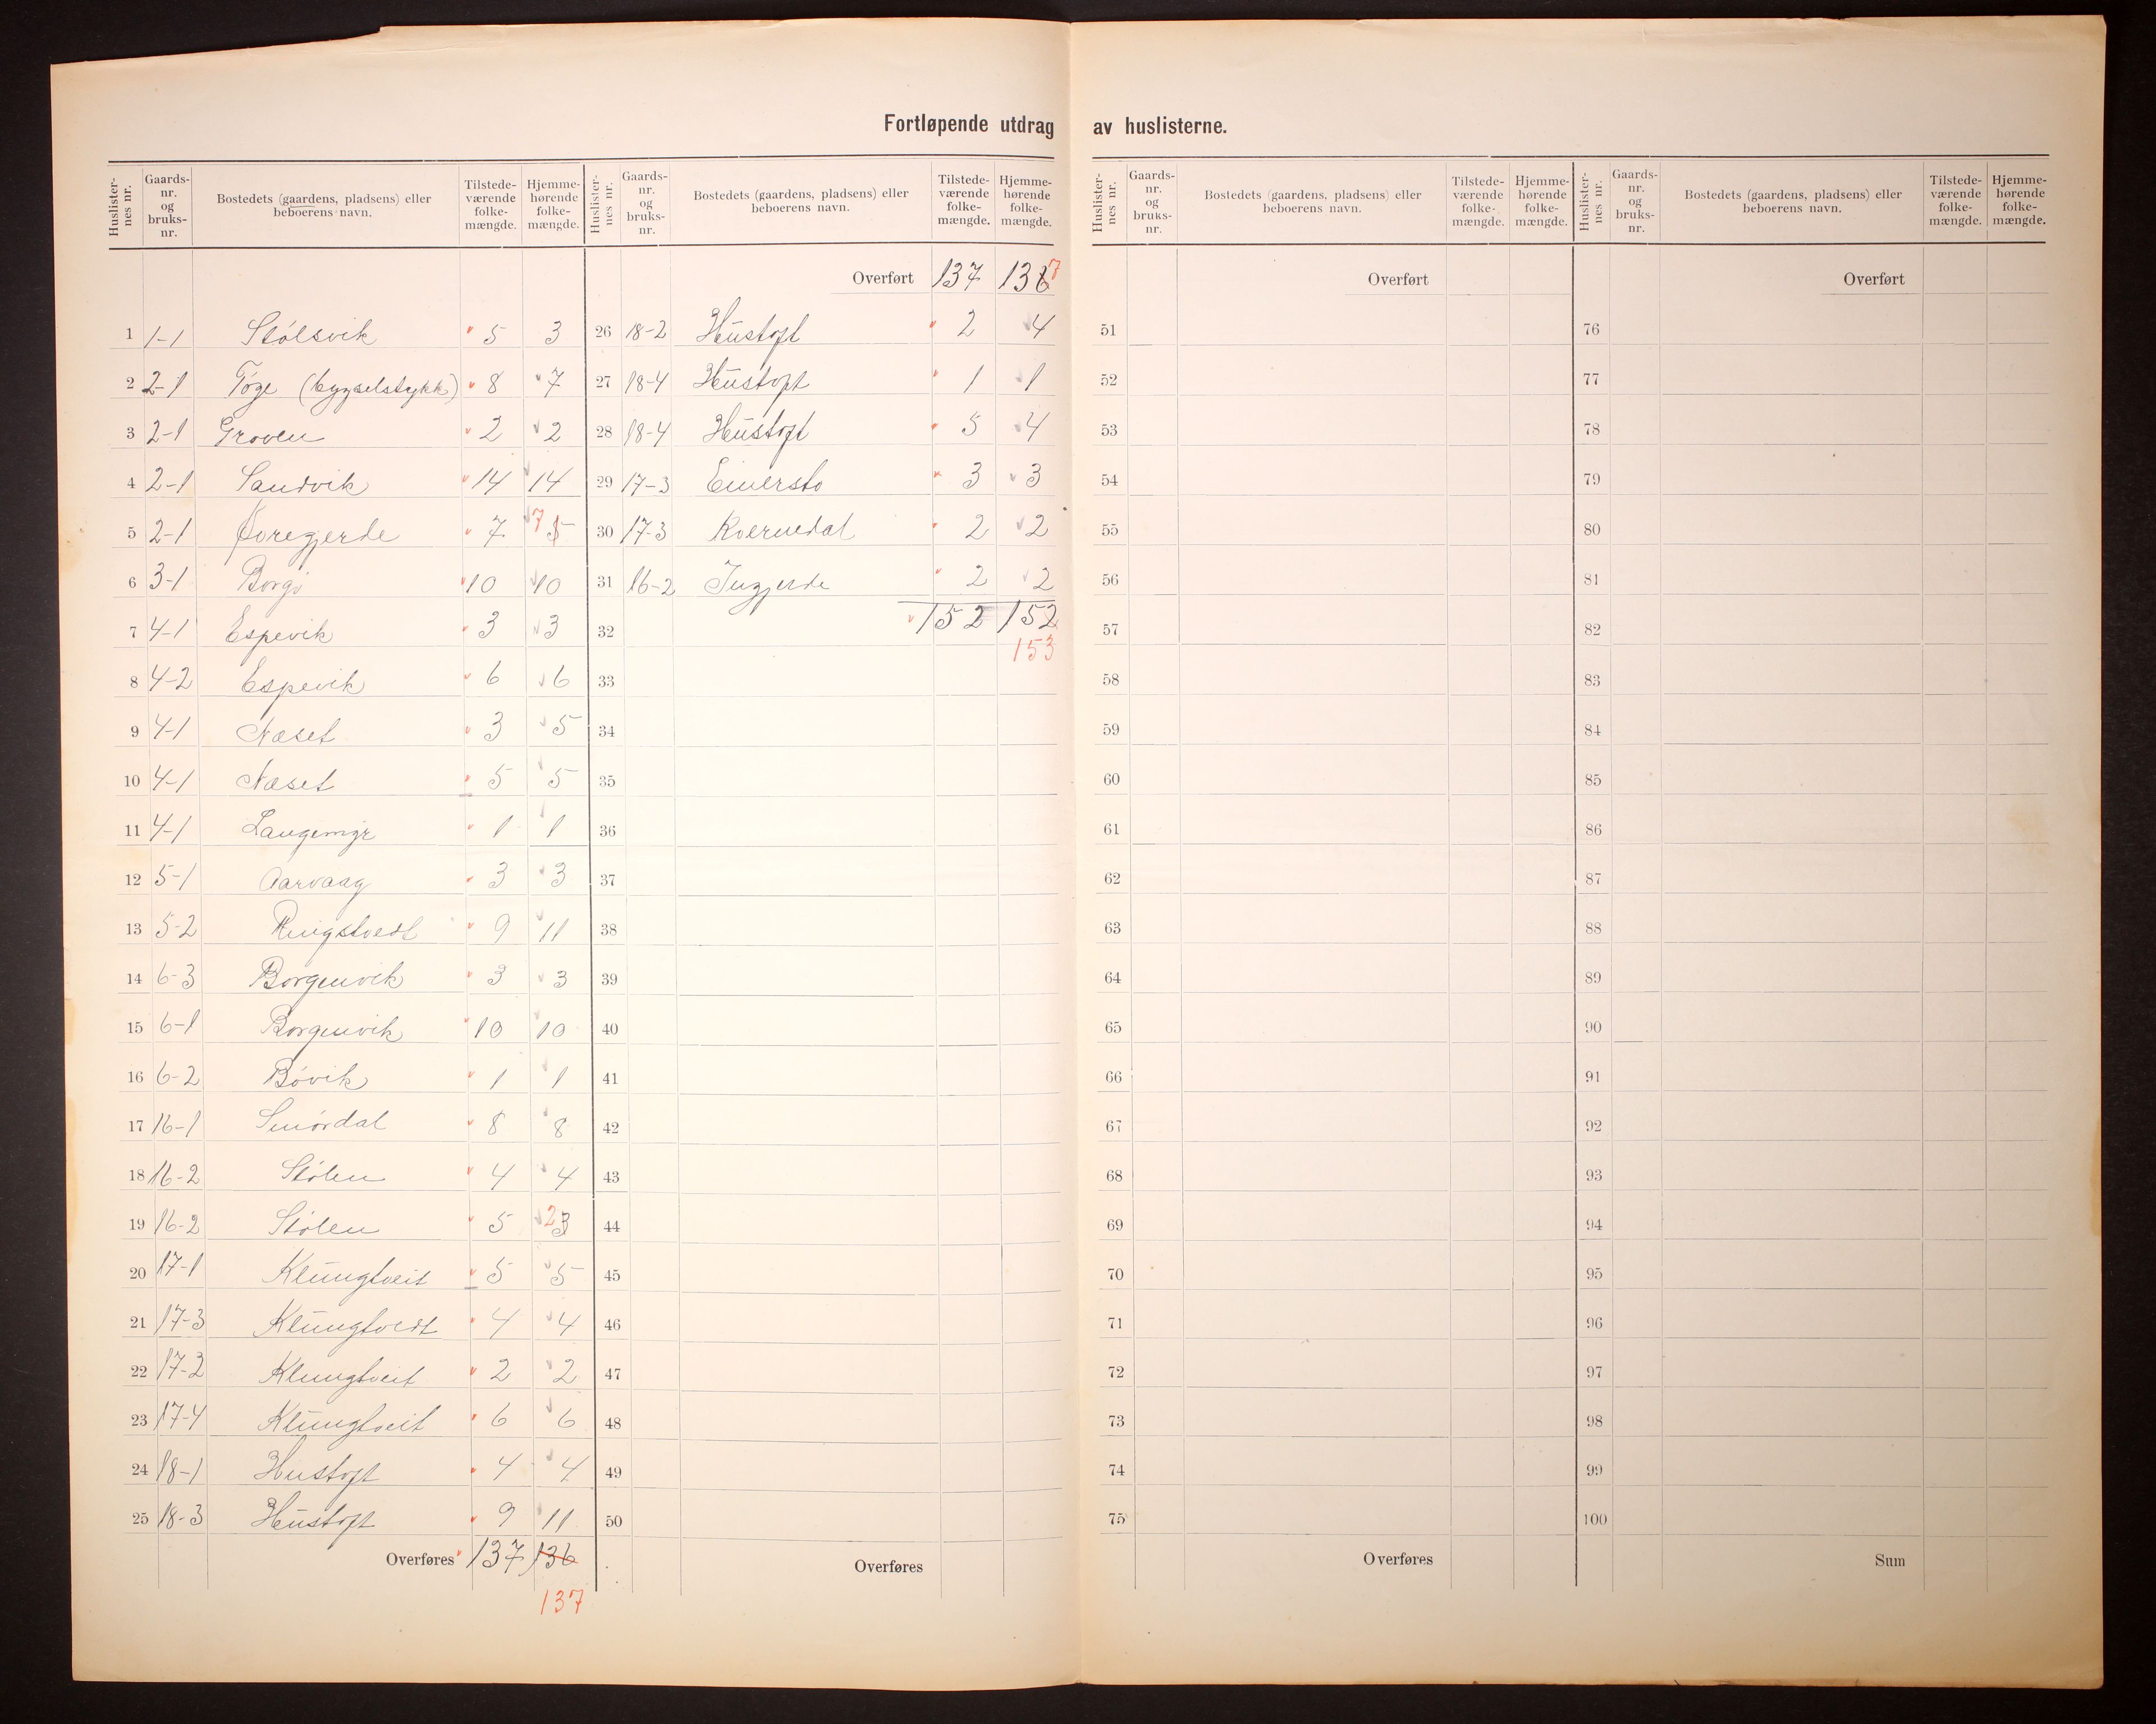 Fortløpende utdrag av huslisterne.
Huslister-nes nr. Gaards-nr. og bruks-nr. Bostedets (gaardens, pladsens) eller beboerens navn. Tilstede-værende folke-mængde. Hjemme-hørende folke-mængde.
1 1-1 Stølsvik 5 3
2 2-1 Tøge (bygselstykke) 8 7
3 2-1 Groven 2 2
4 2-1 Sandvik 14 14
5 2-1 Øvregjerde 7 7 5
6 3-1 Borgø 10 10
7 4-1 Espevik 3 3
8 4-2 Espevik 6 6
9 4-1 Næset 3 5
10 4-1 Næset 5 5
11 4-1 Langemyr 1 1
12 5-1 Aarvaag 3 3
13 5-2 Ringstvedt 9 11
14 6-3 Borgenvik 3 3
15 6-1 Borgenvik 10 10
16 6-2 Bøvik 1 1
17 16-1 Smørdal 8 8
18 16-2 Stølen 4 4
19 16-2 Stølen 5 2 3
20 17-1 Klungtveit 5 5
21 17-3 Klungtvedt 4 4
22 17-2 Klungtveit 2 2
23 17-4 Klungtveit 6 6
24 18-1 Hustoft 4 4
25 18-3 Hustoft 9 11
Overføres 137 136
137
Huslister-nes nr. Gaards-nr. og bruks-nr. Bostedets (gaardens, pladsens) eller beboerens navn. Tilstede-værende folke-mængde. Hjemme-hørende folke-mængde.
Overført 137 136 7
26 18-2 Hustoft 2 4
27 18-4 Hustoft 1 1
28 18-4 Hustoft 5 4
29 17-3 Einersto 3 3
30 17-3 Kvernedal 2 2
31 16-2 Ingjerde 2 2
32 152 152
153
33
34
35
36
37
38
39
40
41
42
43
44
45
46
47
48
49
50
Overføres
Huslister-nes nr. Gaards-nr. og bruks-nr. Bostedets (gaardens, pladsens) eller beboerens navn. Tilstede-værende folke-mængde. Hjemme-hørende folke-mængde.
Overført
51
52
53
54
55
56
57
58
59
60
61
62
63
64
65
66
67
68
69
70
71
72
73
74
75
Overføres
Huslister-nes nr. Gaards-nr. og bruks-nr. Bostedets (gaardens, pladsens) eller beboerens navn. Tilstede-værende folke-mængde. Hjemme-hørende folke-mængde.
Overført
76
77
78
79
80
81
82
83
84
85
86
87
88
89
90
91
92
93
94
95
96
97
98
99
100
Sum